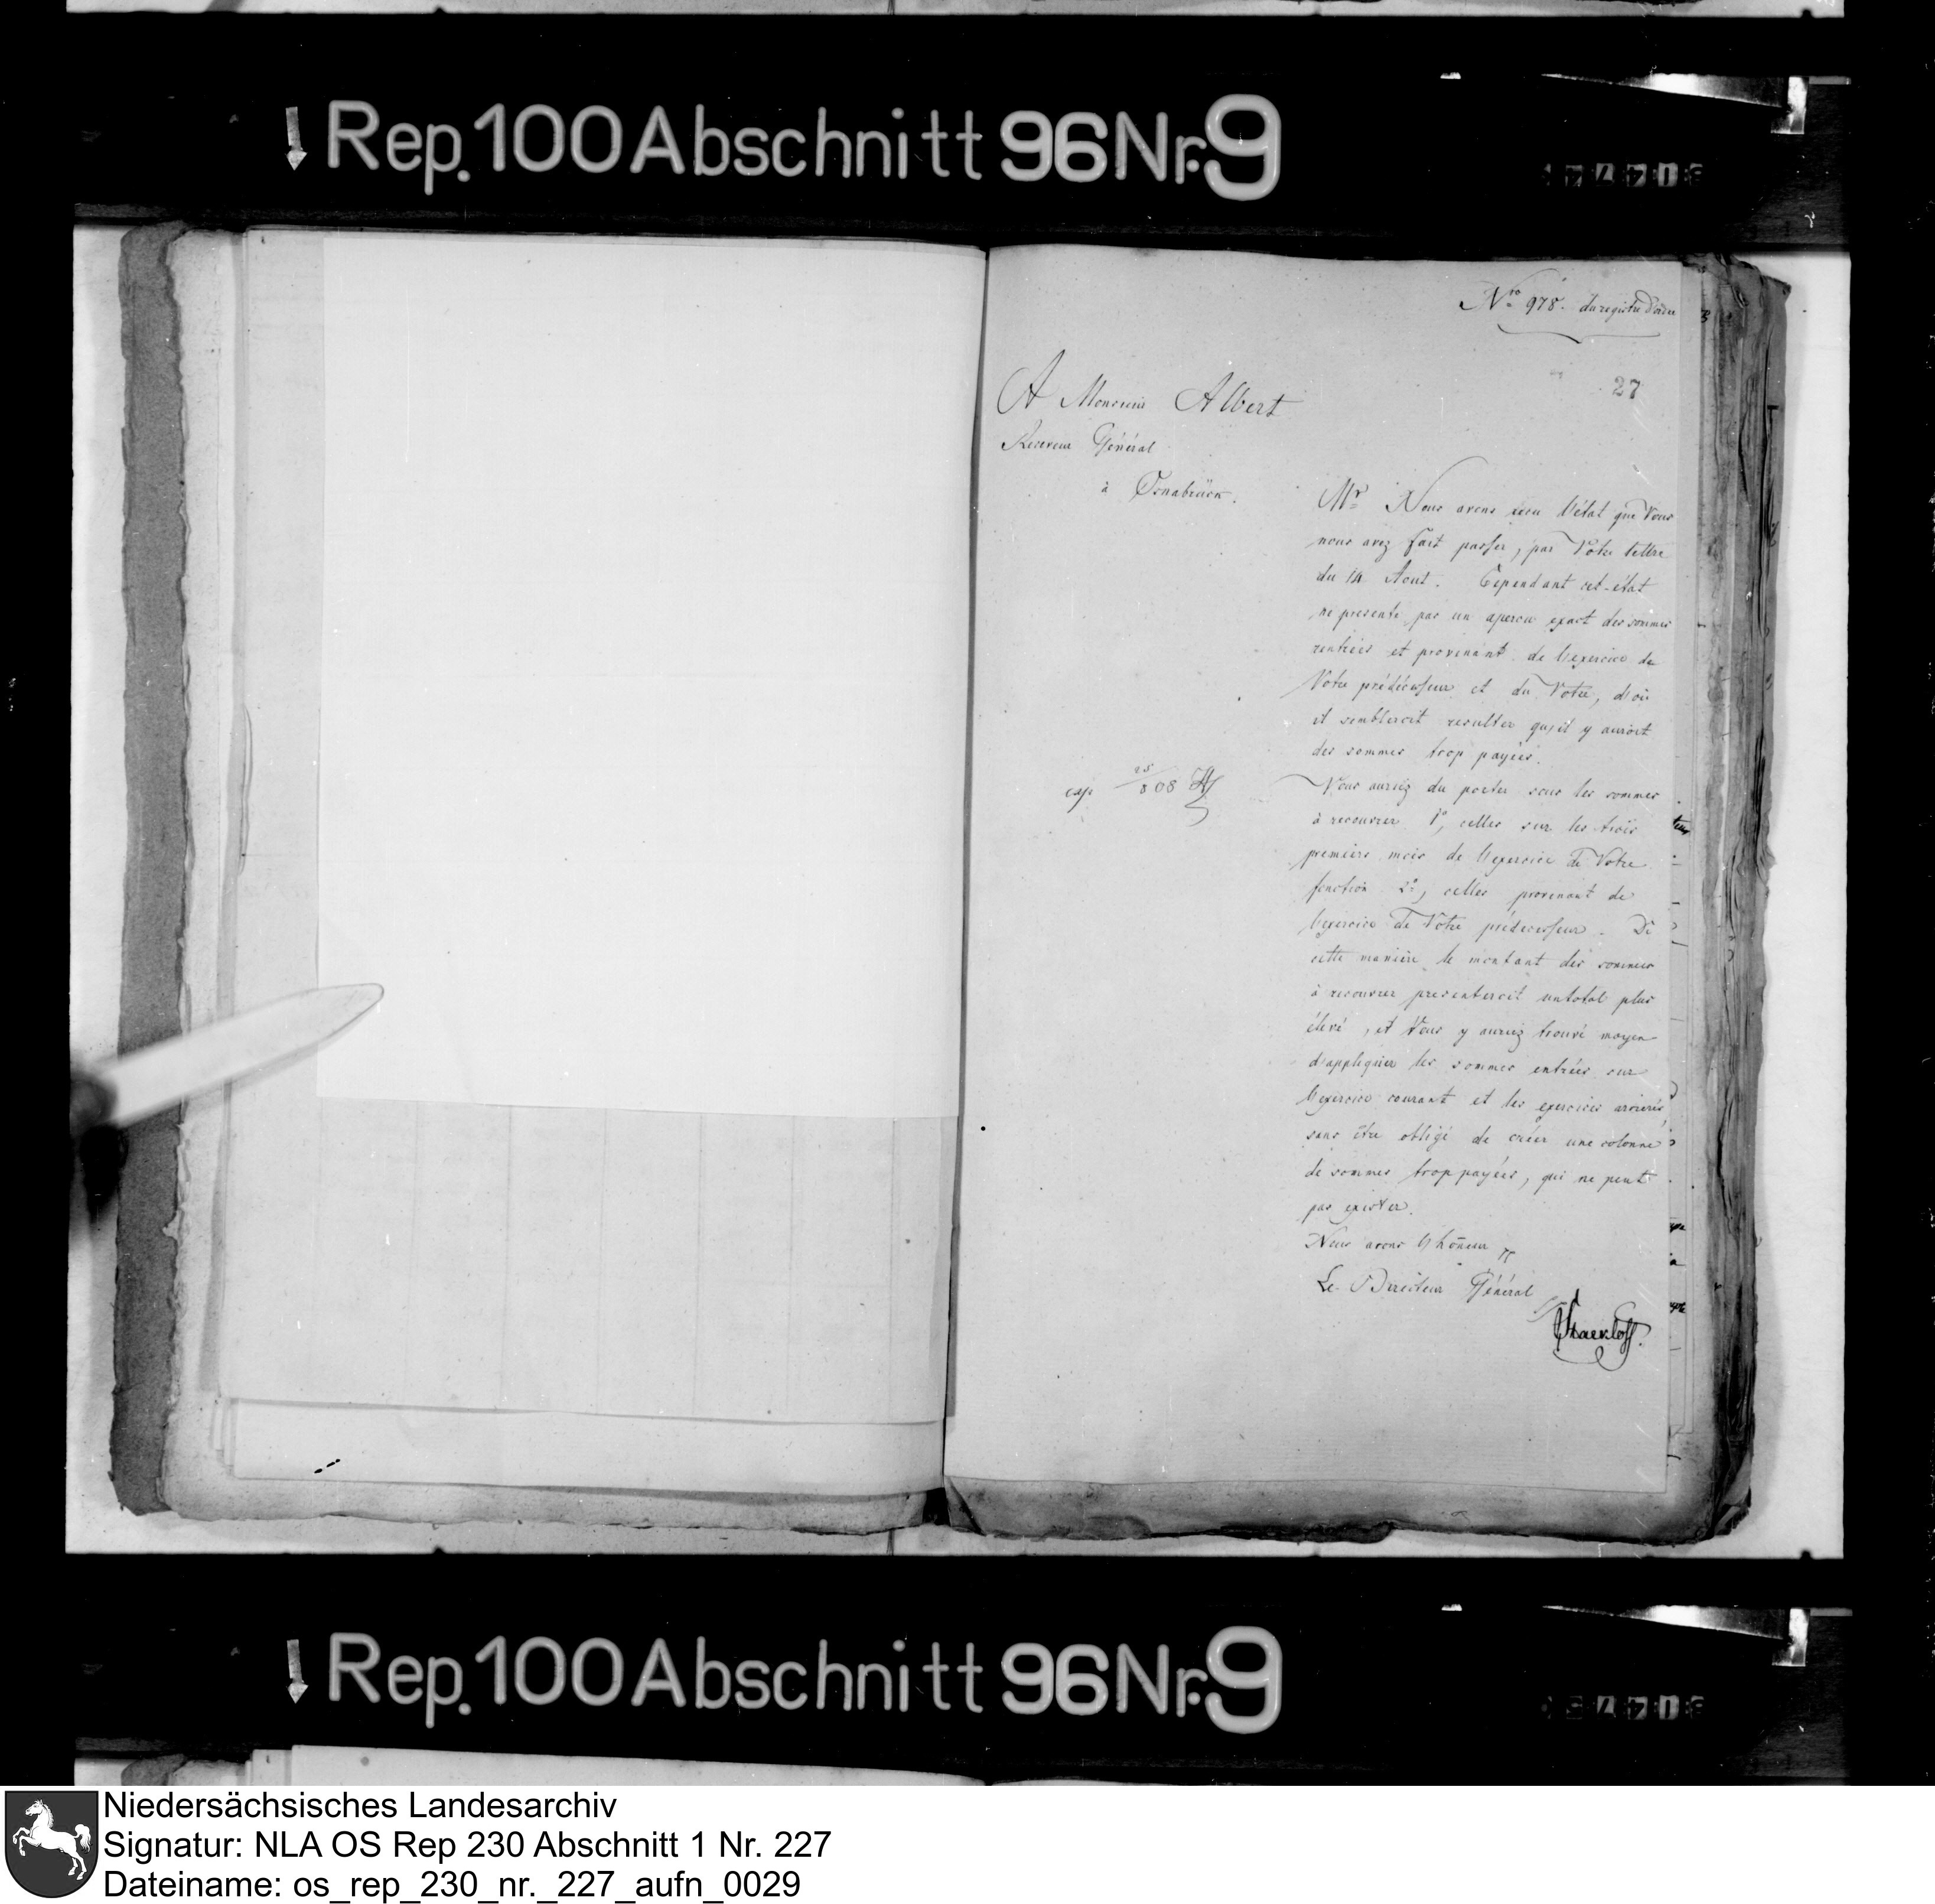 Rep. 100 Abschnitt 96 Nr. 9
Nro 978. du registre d'ordre
27
A Monsieur Albert
Receveur Général
à Osnabrück.
Mr Nous avons recu l'état que Vous
nous avez fait passer, par Votre lettre
du 14 Aout. Cependant cet-état
ne presente pas un apercu exact des sommes
rentrées et provenant de l'exercice de
Votre prédécesseur et du Votre, d'où
il sembleroit resulter qu'il y auroit
des sommes trop payées.
Vous auriez du porter sous les sommes
à recouvrer 1o, celles sur les trois
premiers mois de l'exercice de Votre
fonction 2o, celles provenant de
l'exercice de Votre prédecesseur. De
cette maniere le montant des sommes
à recouvrer presenteroit un total plus
élevé, et Vous y auriez trouvé moyen
d'appliquer les sommes entrées sur
l'exercice courant et les exercices arrierés,
sans être obligé de créer une colonne
de sommes trop payées, qui ne peut
pas exister.
Nous avons l'honeur
Le Directeur Général
exp 25/8 08
Rep. 100 Abschnitt 96 Nr. 9
Niedersächsisches Landesarchiv
Signatur: NLA OS Rep 230 Abschnitt 1 Nr. 227
Dateiname: os_rep_230_nr._227_aufn_0029